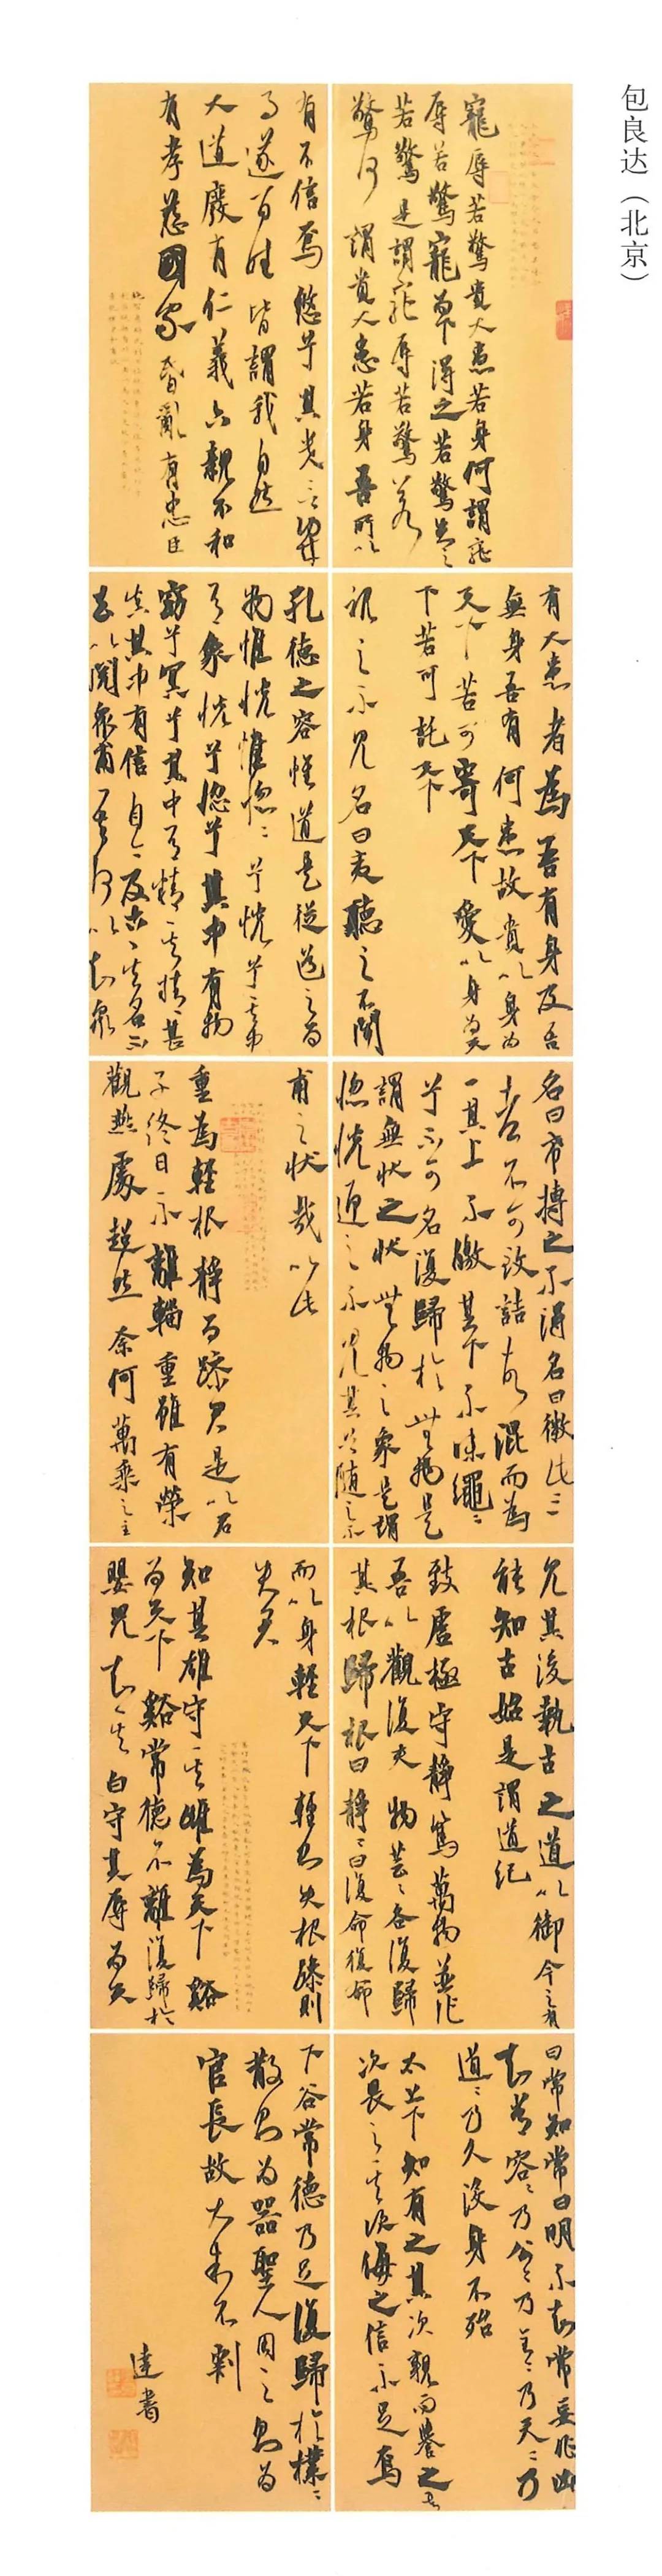 包良达（北京）
寵辱若驚貴大患若身何謂寵
辱若驚寵為下得之若驚失之
若驚是謂寵辱若驚
驚何謂貴大患若身吾所以
有大患者為吾有身及吾
無身吾有何患故貴以身為
天下若可寄天下愛以身為
下若可託天下
視之不見名曰夷聽之不聞
名曰希搏之不得名曰微此三
者不可致詰故混而為
一其上不皦其下不昧繩〻
兮不可名復歸於無物是
謂無狀之狀無物之象是謂
惚恍迎之不見其首隨之不
見其後執古之道以御今之有
能知古始是謂道紀
致虛極守靜篤萬物並作
吾以觀復夫物芸〻各復歸
其根歸根曰靜〻曰復命復命
曰常知常曰明不知常妄作凶
知常容〻乃公〻乃王〻乃天〻乃
道〻乃久沒身不殆
太上下知有之其次親而譽之其
次畏之其次侮之信不足焉
有不信焉悠兮其貴言功成
事遂百姓皆謂我自然
大道廢有仁義六親不和
有孝慈國家昏亂有忠臣
孔德之容惟道是從道之為
物惟恍惟惚〻兮恍兮其中
有象恍兮惚兮其中有物
窈兮冥兮其中有精其精甚
真其中有信自今及古其名不
去以閱眾甫吾何以知眾
甫之狀哉以此
重為輕根靜為躁君是以君
子終日不離輜重雖有榮
觀燕處超然奈何萬乘之主
而以身輕天下輕則失根躁則
失君
知其雄守其雌為天下谿
為天下谿常德不離復歸於
嬰兒知其白守其辱為天
下谷常德乃足復歸於樸〻
散則為器聖人用之則為
官長故大制不割
達書